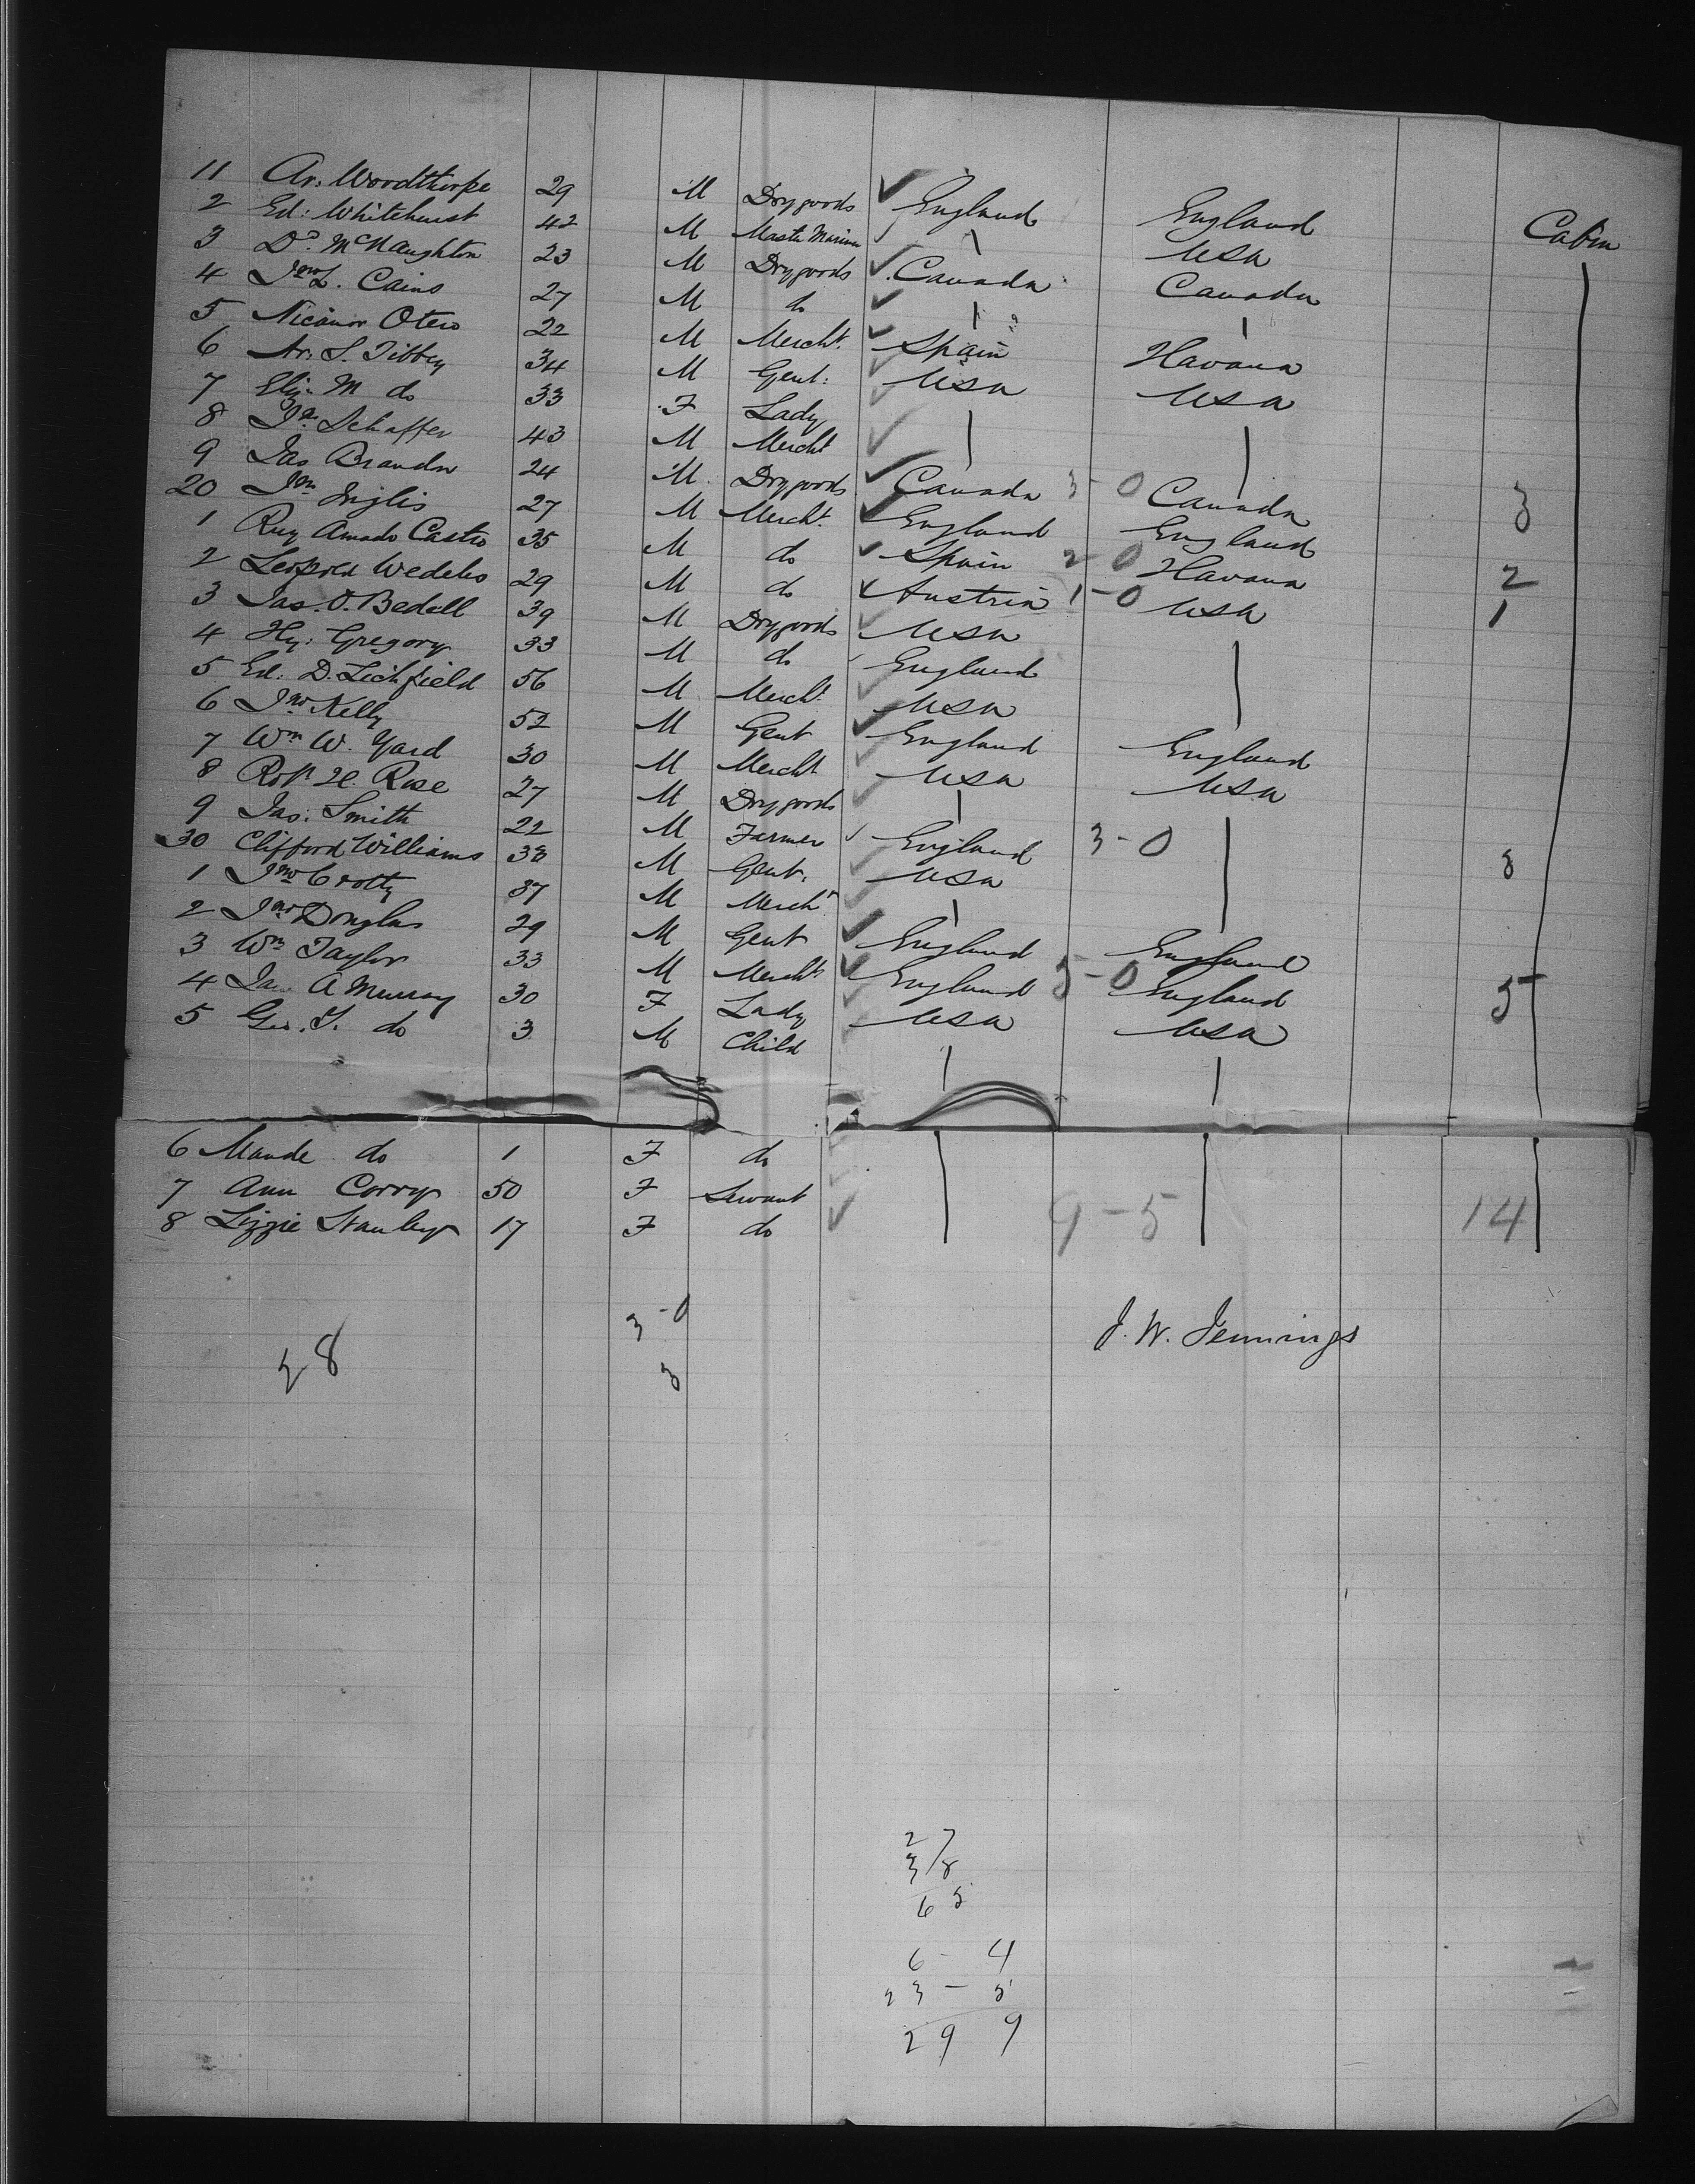 11 Ar: Woodthorpe 29 M Drygoods ✓ England England Cabin
2 Ed: Whitehurst 42 M Master Mariner ✓ \ USA
3 Dd. McNaughton 23 M Drygoods ✓ Canada Canada
4 Jno L. Cains 27 M do ✓ | |
5 Nicanor Otero 22 M Mercht. ✓ Spain Havana
6 Ar: S. Tibbey 34 M Gent: ✓ USA USA
7 Eliz M do 33 F Lady
8 Ja Schaffer 43 M Mercht ✓ | |
9 Jas Brandon 24 M Drygoods ✓ Canada 3-0 Canada 3
20 Jno Inglis 27 M Mercht. ✓ England England
1 Ruy Amado Castro 35 M do ✓ Spain 2-0 Havana 2
2 Leopold Wedeles 29 M do ✓ Austria 1-0 USA 1
3 Jas. O. Bedell 39 M Drygoods ✓ USA
4 Hy: Gregory 33 M do ✓ England |
5 Ed: D. Lichfield 56 M Mercht ✓ USA
6 Jno Kelly 52 M Gent ✓ England England
7 Wm W. Yard 30 M Mercht ✓ USA USA
8 Robt H. Rose 27 M Drygoods ✓ |
9 Jas: Smith 22 M Farmer ✓ England 3-0 |
30 Clifford Williams 38 M Gent. ✓ USA 3
1 Jno Crotty 37 M Mercht ✓ | |
2 Jno Douglas 29 M Gent ✓ England England
3 Wm Taylor 33 M Mercht ✓ England 5-0 England 5
4 A Murray 30 F Lady ✓ USA USA
5 Geo. T. do 3 M Child | |
6 Maude do 1 F do ✓ | |
7 Ann Corry 50 F Servant ✓ 9-5 14
8 Lizzie Stanley 17 F do ✓
3-0
J. W. Jennings
28 3
27
38
65
6 - 4
23 - 5
29 9